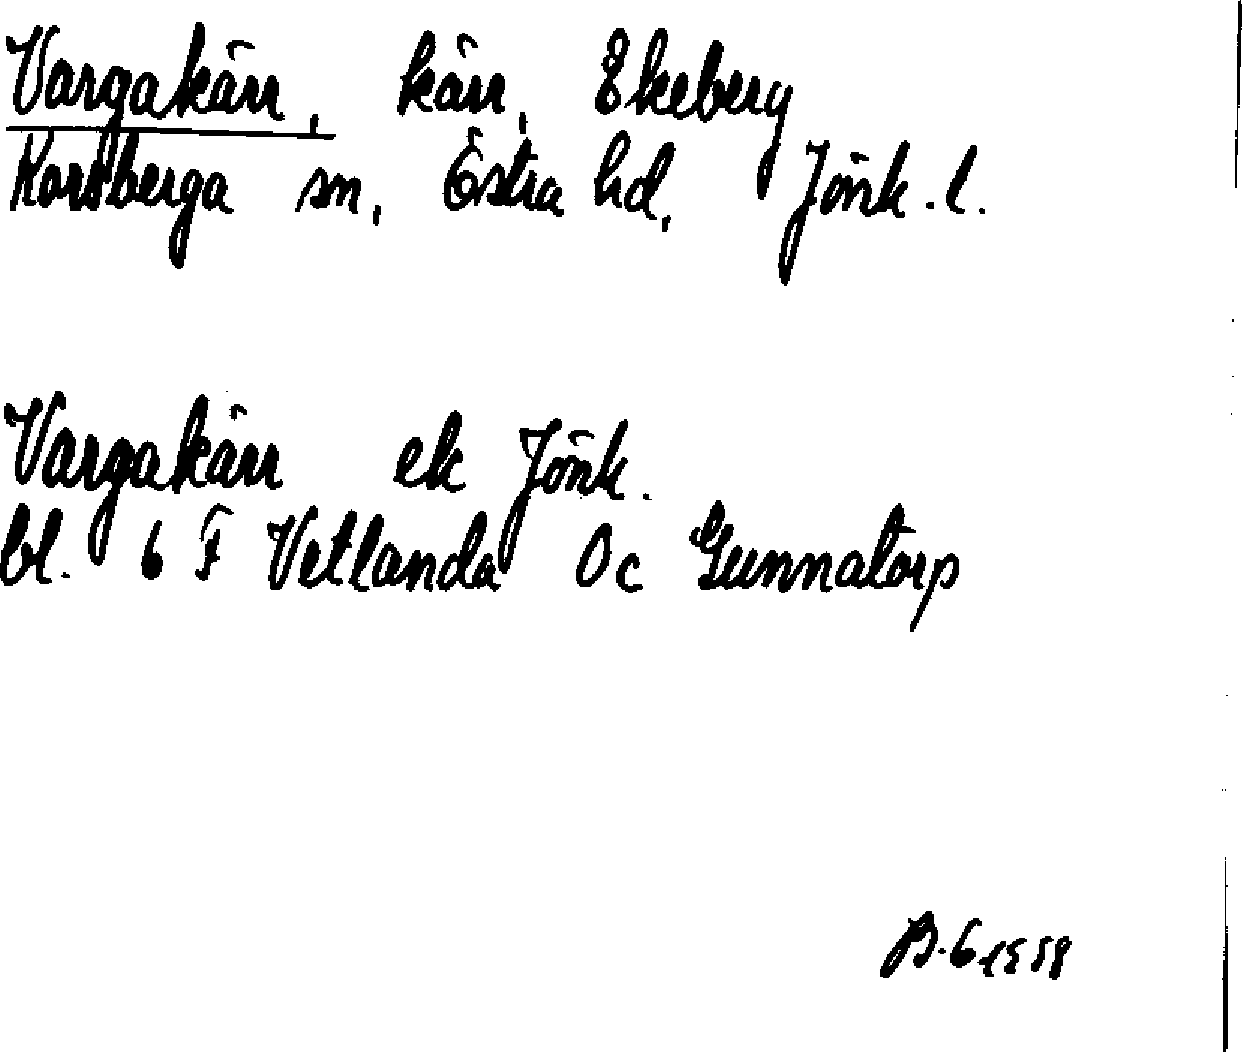 Vargakärr, kärr, Ekeberg
Korsberga sn, Östra hd, Jönk. l.
Vargakärr ek Jönk.
bl. 6 F Vetlanda 0c Gunnatorp
B.G. 1958